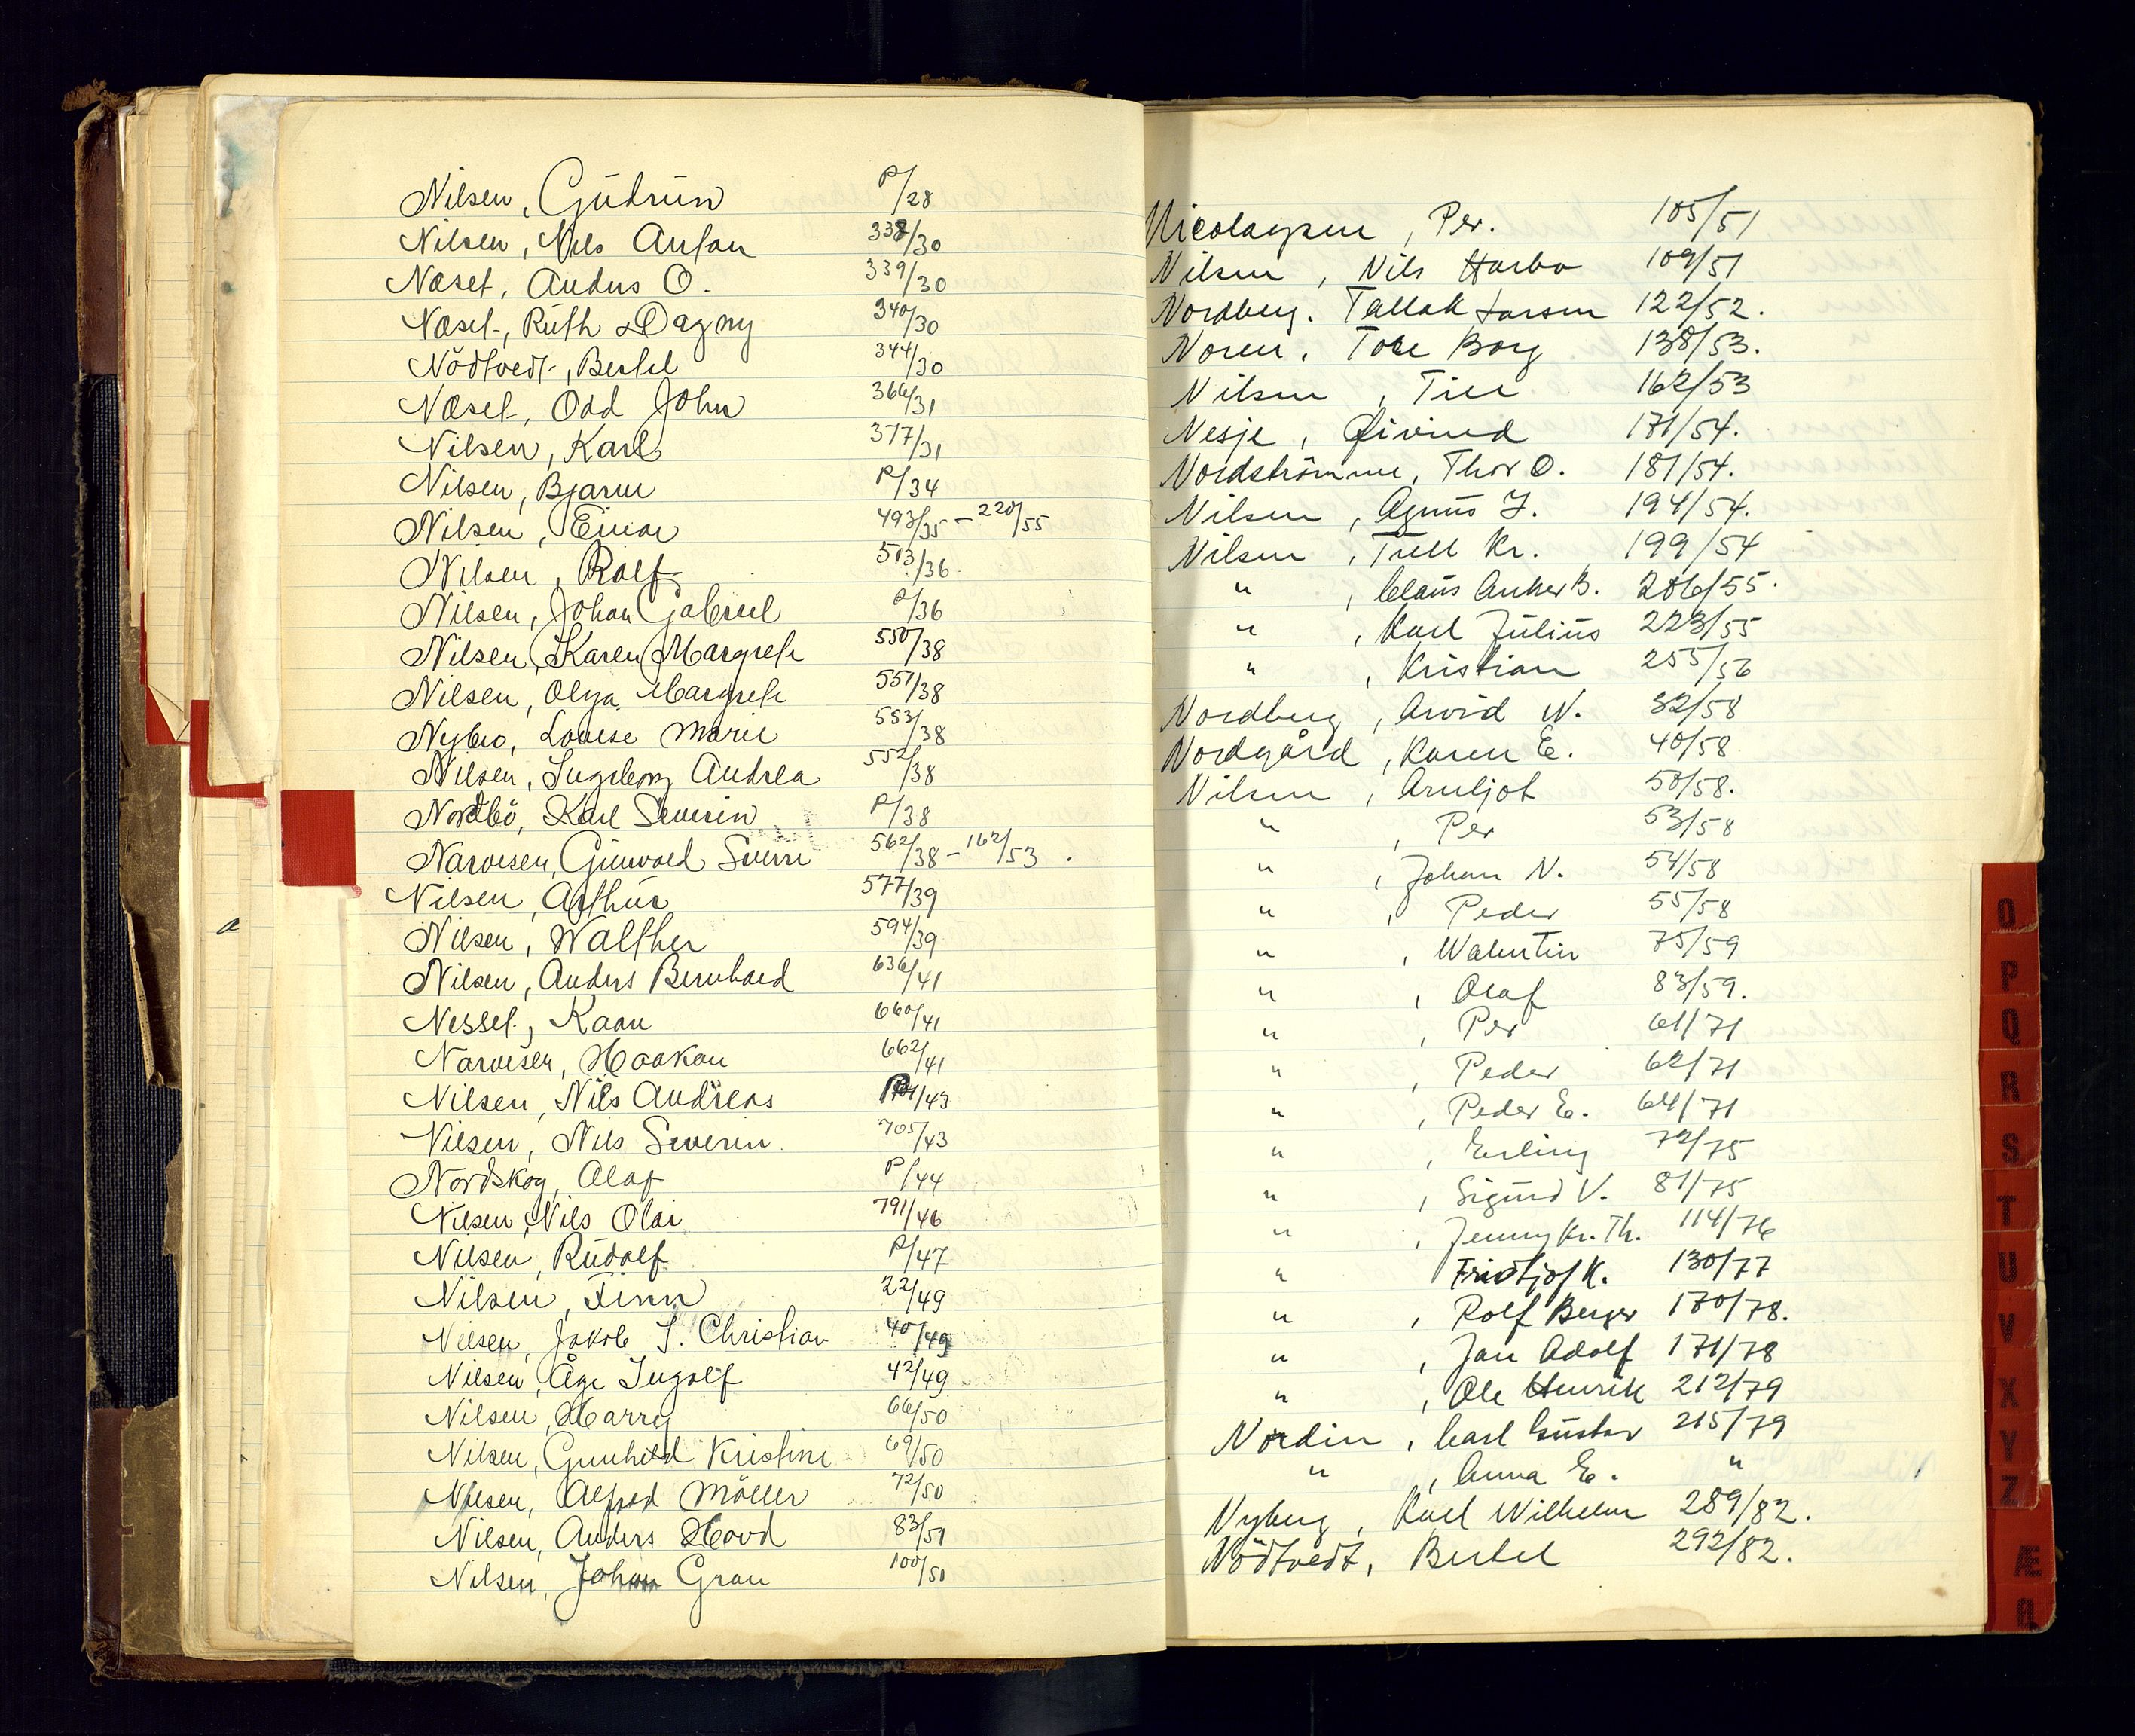 Nilsen, Gudrun P/28
Nilsen, Nils Anfan 338/30
Næset, Andus O. 339/30
Næset, Ruth Dagny 340/30
Nödtvedt, Bertel 344/30
Næset, Odd John 366/31
Nilsen, Karl 377/31
Nilsen, Bjarne P/34
Nilsen, Einar 493/35 - 220/55
Nilsen, Rolf 503/36
Nilsen, Johan Gabriel P/36
Nilsen, Karen Margrete 550/38
Nilsen, Olga Margrete 551/38
Nybro, Louise Marie 553/38
Nilsen, Ingeborg Andrea 552/38
Nordbö, Karl Severin P/38
Narvesen, Gunvald Sverre 562/38 - 162/53.
Nilsen, Arthur 577/39
Nilsen, Walther 594/39
Nilsen, Anders Bernhard 636/41
Nesset, Kaare 660/41
Narvesen, Haakon 662/41
Nilsen, Nils Andreas /43
Nilsen, Nils Severin 705/43
Nordskog, Olaf P/44
Nilsen, Nils Olai 791/46
Nilsen, Rudolf P/47
Nilsen, Finn 22/49
Nilsen, Jakob J. Christian 40/49
Nilsen, Åge Ingolf 42/49
Nilsen, Harry 66/50
Nilsen, Gunhild Kristine 69/50
Nilsen, Alfred Möller 72/50
Nilsen, Anders Hovd 83/51
Nilsen, Johan Grau 100/50
Nicolaysen, Per. 105/51
Nilsen, Nils Harbo 109/51
Nordberg. Tallak Larsen 122/52.
Noren, Tore Borg 138/53.
Nilsen, 162/53
Nesje, Øivind 171/54.
Nordströmme, Thor O. 181/54.
Nilsen, Agnus J. 194/54.
Nilsen, Tell Kr. 199/54
" , Claus Anker B. 206/55.
" , Karl Julius 223/55
" , Kristian 255/56
Nordberg, Arvid N. 32/58
Nordgård, Karen E. 40/58
Nilsen, Arnljot 50/58.
" , Per 53/58
" , Johan N. 54/58
" , Peder 55/58
" , Walentin 75/59
" , Olaf 83/59.
" , Per 61/71
" , Peder 62/71
" , Peder E. 64/71
" , Erling 72/75
" , Sigurd V. 81/75
" , Jenny Kr. Th. 114/76
" Fridtjof K. 130/77
" , Rolf Berger 170/78.
" , Jan Adolf 171/78
" , Ole Henrik 212/79
Nordin, Carl Gustav 215/79
" , Anna E. "
Nyberg, Karl Wilhelm 289/82.
Nödtvedt, Bertel 292/82.
O
P
Q
R
S
T
U
V
X
Y
Z
Æ
Ø